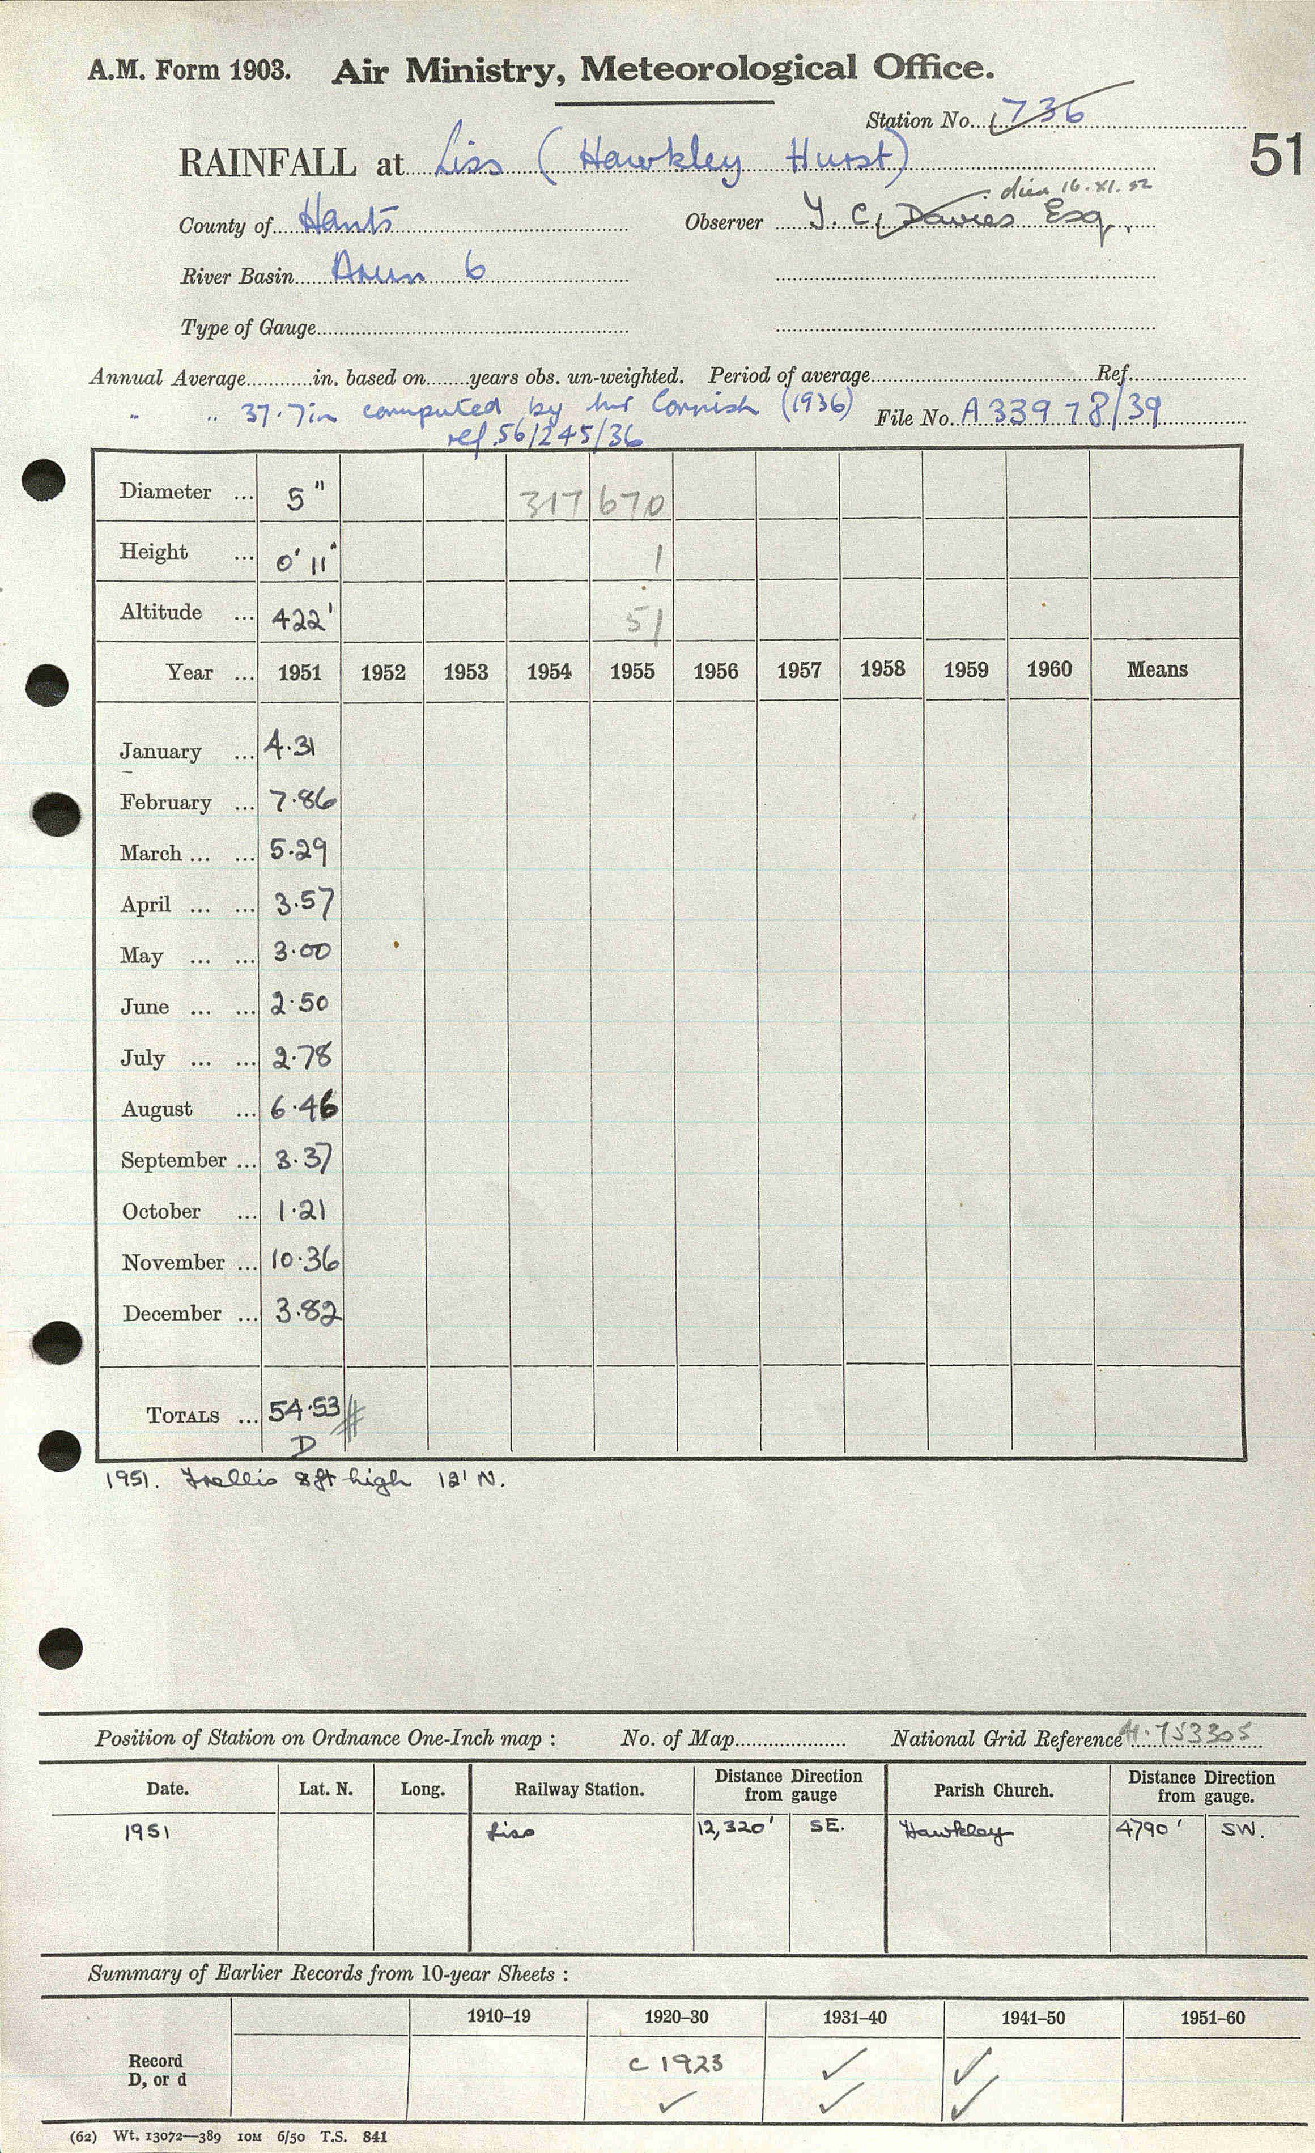 A.M. Form 1903. Air Ministry, Meteorological Office.
Station No. 736
51
RAINFALL at Liss (Hawkley Hurst)
died 16.XI.52
County of Hants Observer J. C. Davies Esq.
River Basin Arun 6
Type of Gauge
Annual Average in. based on years obs. un-weighted. Period of average Ref.
" " 37.7in computed by Mr Cornish (1936) File No. A 33978/39
ref. 561245/36
Diameter ... 5" 317 670
Height ... 0' 11" 1
Altitude ... 422' 51
Year ... 1951 1952 1953 1954 1955 1956 1957 1958 1959 1960 Means
January ... 4.31
February ... 7.86
March ... ... 5.29
April ... ... 3.57
May ... ... 3.00
June ... ... 2.50
July ... ... 2.78
August ... 6.46
September ... 3.37
October ... 1.21
November ... 10.36
December ... 3.82
TOTALS ... 54.53 #
D
1951. Trellis 8ft high 12' N.
Position of Station on Ordnance One-Inch map : No. of Map National Grid Reference 753305
Date. Lat. N. Long. Railway Station. Distance from gauge Direction Parish Church. Distance from gauge. Direction
1951 Liss 12,320' SE. Hawkley 4790' SW.
Summary of Earlier Records from 10-year Sheets :
1910–19 1920–30 1931–40 1941–50 1951–60
Record c 1923 ✓ ✓
D, or d ✓ ✓ ✓
(62) Wt. 13072—389 10M 6/50 T.S. 841